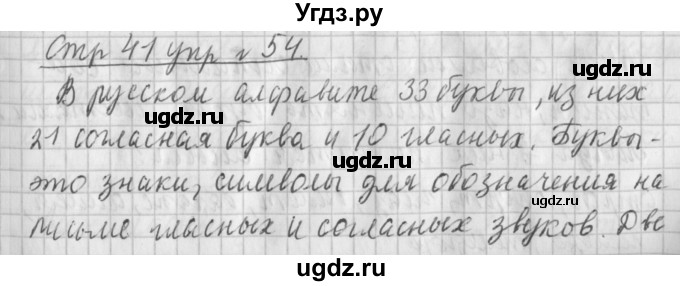 Угдз.ру
Стр 41 упр № 54
ugdz.ru
ugdz.ru
В русском алфавите 33 буквы, из них
ugdz.ru
21 согласная буква и 10 гласных. Буквы-
это знаки, символы для обозначения на
ugdz.ru
ugdz.ru
письме гласных и согласных звуков. Две
ugdz.ru
ugdz.ru